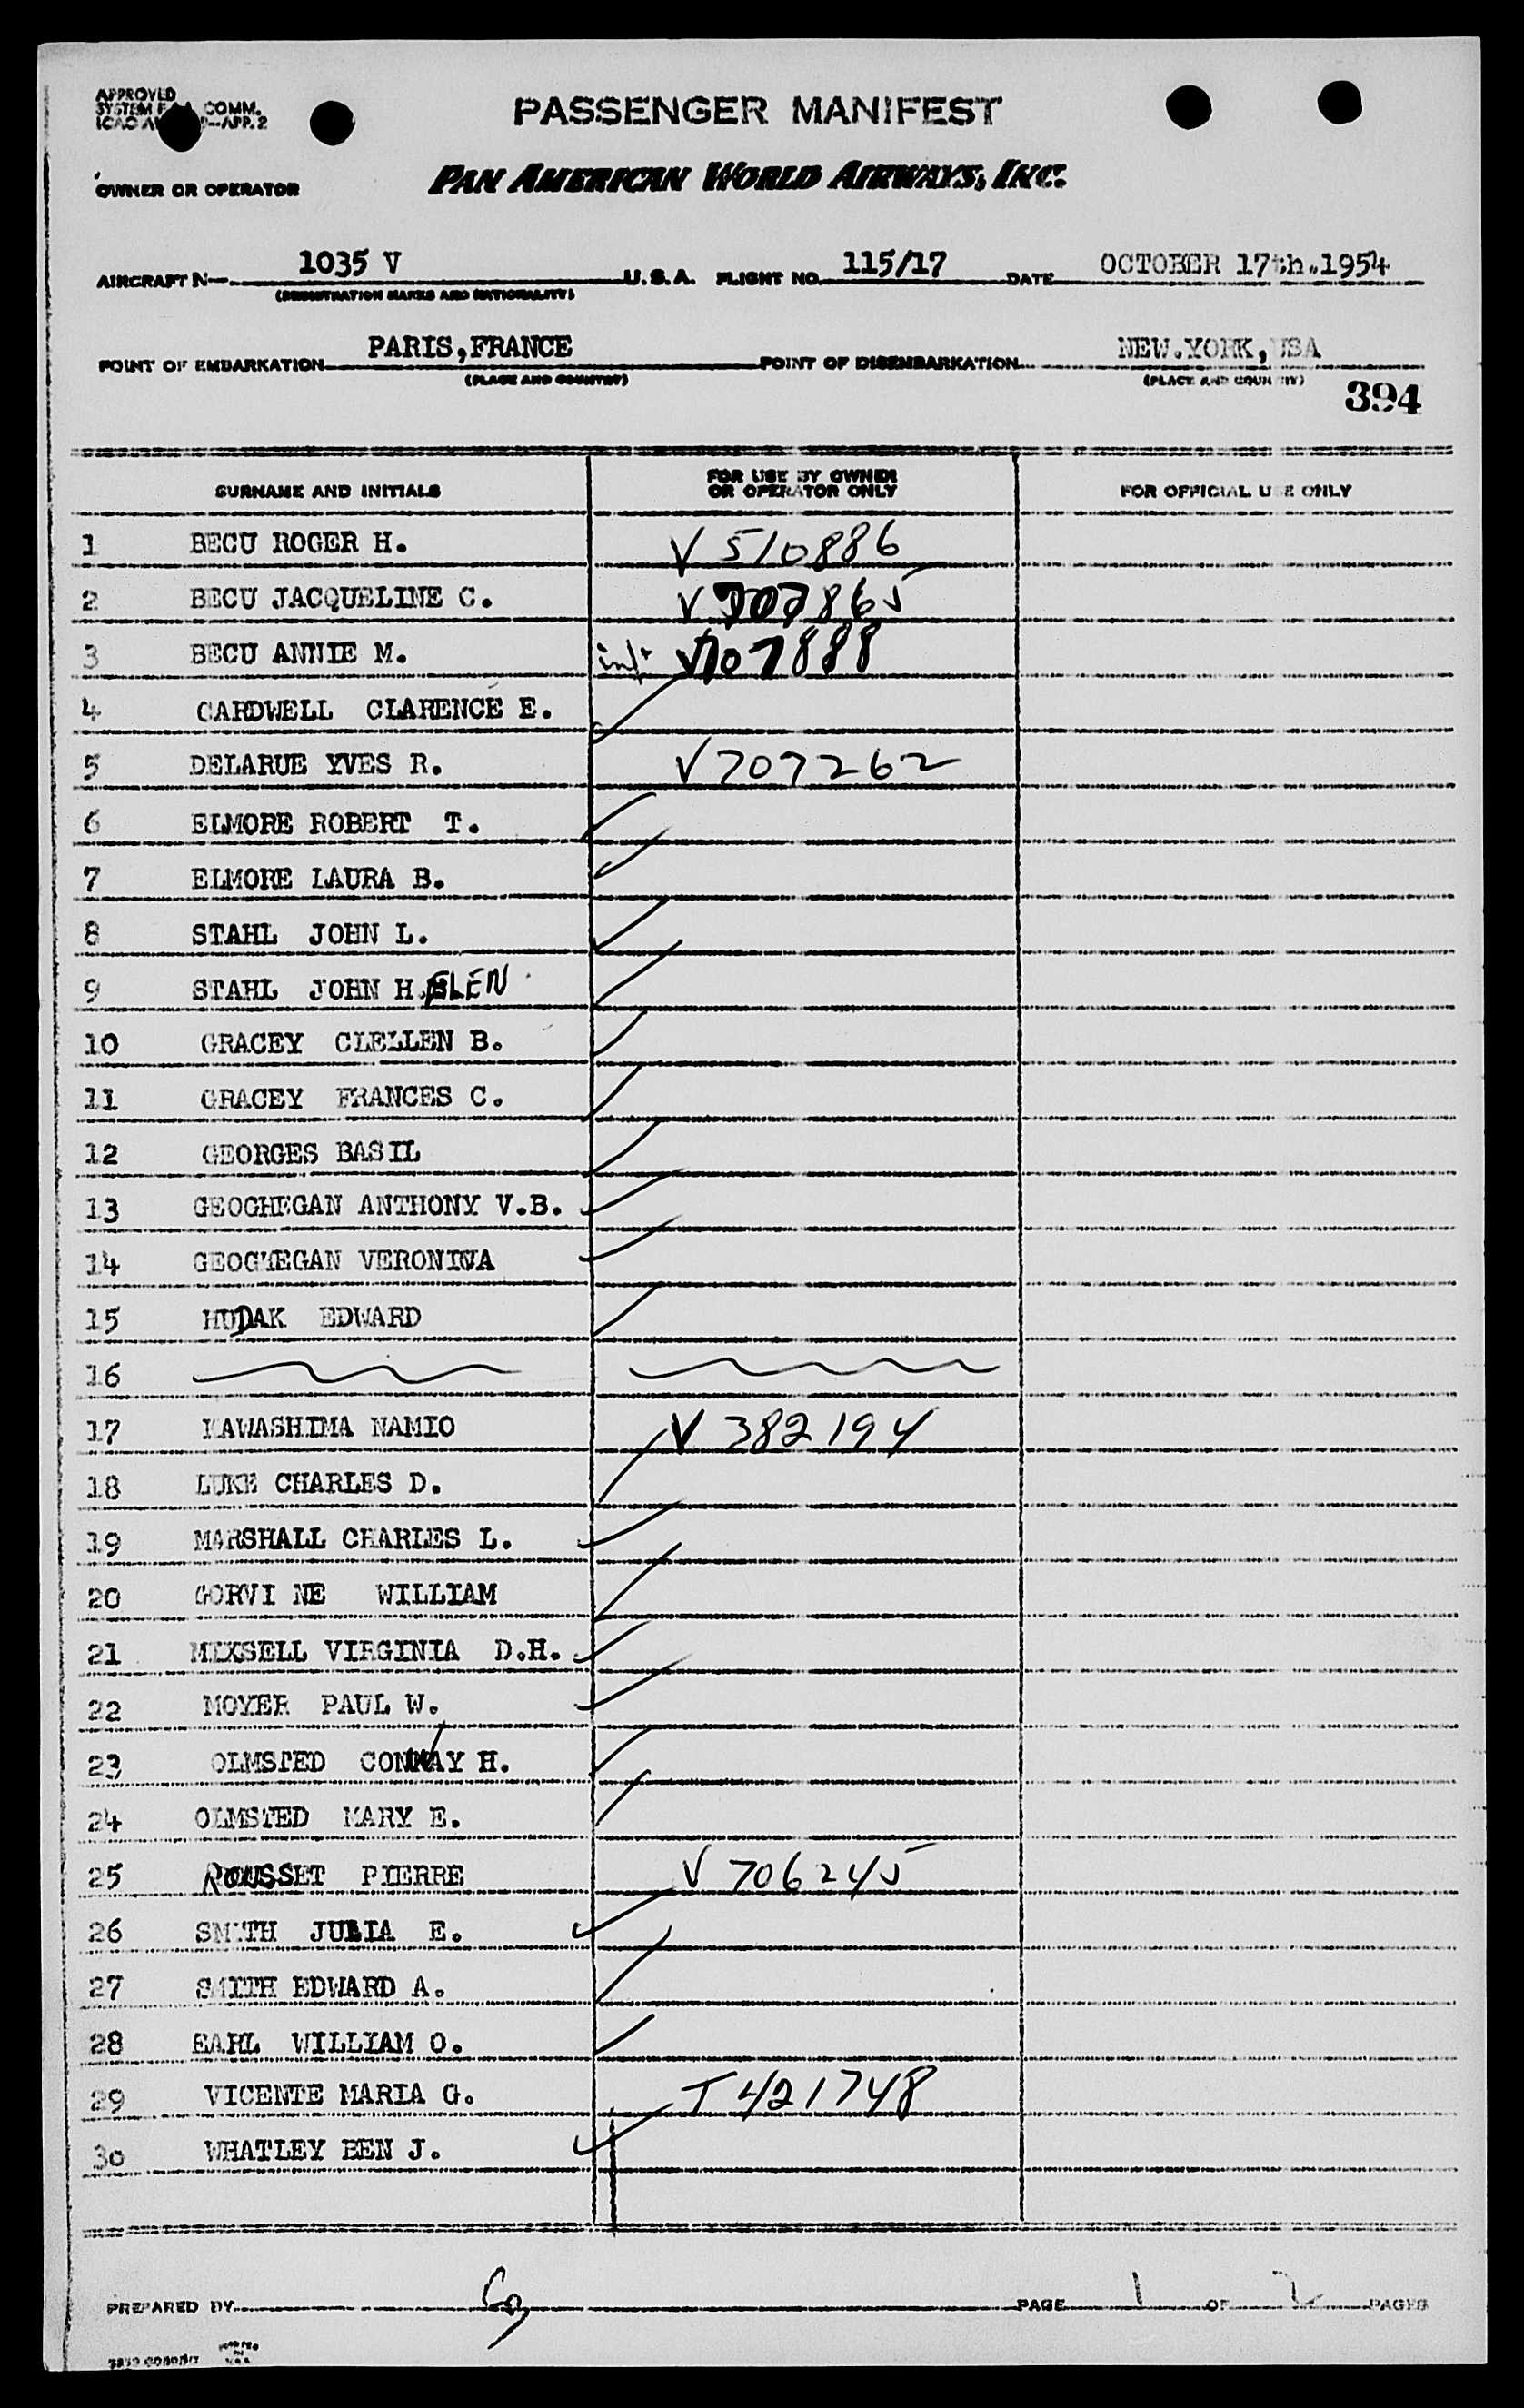 APPROVED
SYSTEM F A A COMM.
ICAO AN P—APP. 2
PASSENGER MANIFEST
OWNER OR OPERATOR PAN AMERICAN WORLD AIRWAYS, INC.
AIRCRAFT N— 1035 V U.S.A. FLIGHT NO. 115/17 DATE OCTOBER 17th.1954
(REGISTRATION MARKS AND NATIONALITY)
POINT OF EMBARKATION PARIS,FRANCE POINT OF DISEMBARKATION NEW.YORK,USA
(PLACE AND COUNTRY) (PLACE AND COUNTRY)
394
SURNAME AND INITIALS FOR USE BY OWNER OR OPERATOR ONLY FOR OFFICIAL USE ONLY
1 BECU ROGER H. V 510886
2 BECU JACQUELINE C. V 707865
3 BECU ANNIE M. inf. V707888
4 CARDWELL CLARENCE E.
5 DELARUE YVES R. V707262
6 ELMORE ROBERT T.
7 ELMORE LAURA B.
8 STAHL JOHN L.
9 STAHL JOHN H.ELEN
10 GRACEY CLELLEN B.
11 GRACEY FRANCES C.
12 GEORGES BASIL
13 GEOGHEGAN ANTHONY V.B.
14 GEOGHEGAN VERONICA
15 HUDAK EDWARD
16
17 KAWASHIMA NAMIO V 382194
18 LUKE CHARLES D.
19 MARSHALL CHARLES L.
20 GORVI NE WILLIAM
21 MIXSELL VIRGINIA D.H.
22 MOYER PAUL W.
23 OLMSTED CONWAY H.
24 OLMSTED MARY E.
25 ROUSSET PIERRE V 706245
26 SMITH JULIA E.
27 SMITH EDWARD A.
28 EARL WILLIAM O.
29 VICENTE MARIA G. T 421748
30 WHATLEY BEN J.
PREPARED BY PAGE 1 OF 2 PAGES